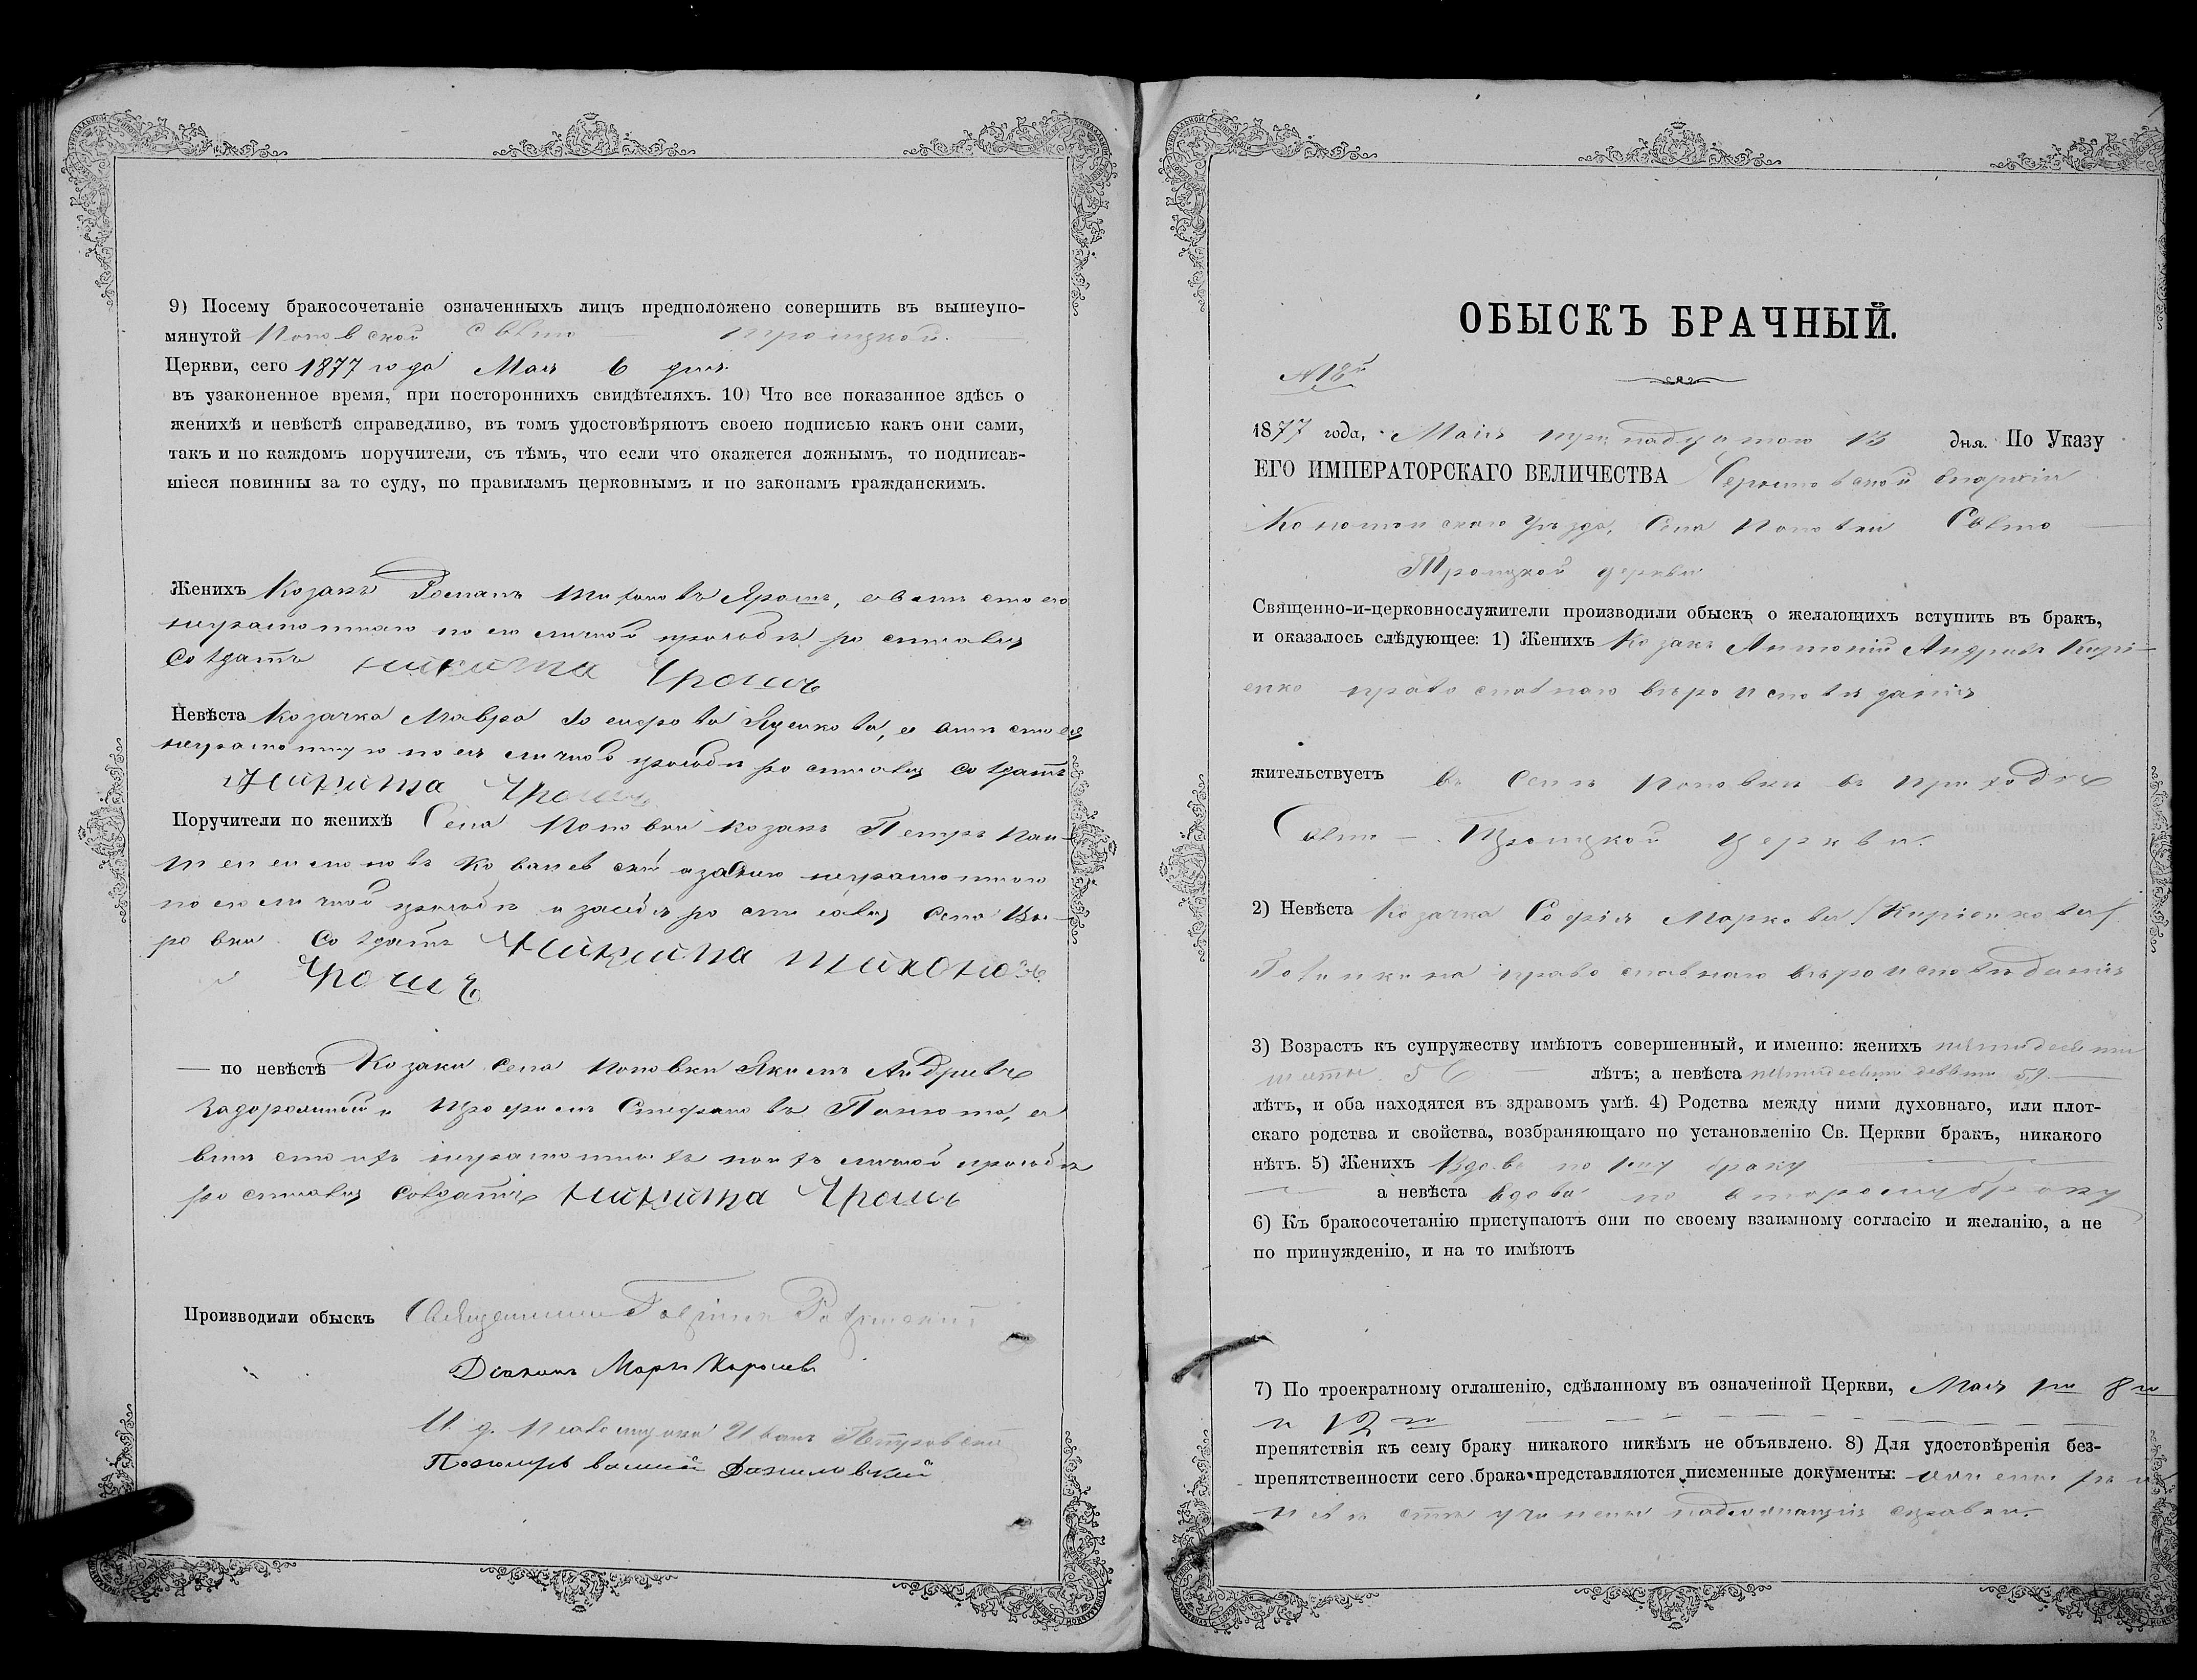 9) Посему бракосочетаніе означенныхъ лицъ предположено совершить въ вышеупо-
мянутой Поповской Свято — Троицкой.
Церкви, сего 1877 года Мая 6 дня.
въ узаконенное время, при постороннихъ свидѣтеляхъ. 10) Что все показанное здѣсь о
женихѣ и невѣстѣ справедливо, въ томъ удостовѣряютъ своею подписью какъ они сами,
такъ и по каждомъ поручители, съ тѣмъ, что если что окажется ложнымъ, то подписав-
шіеся повинны за то суду, по правиламъ церковнымъ и по законамъ гражданскимъ.
Женихъ Козакъ Романъ Тихоновъ Ярошъ, а вмѣсто его
неграмотнаго по его личной прозьбѣ росписался
Солдатъ Никита Ярошъ
Невѣста Козачка Мавра Яценкова, а вмѣсто ея
неграмотную по ея личной прозьбѣ росписался Солдатъ
Никита Ярошъ
Поручители по женихѣ Села Поповки козакъ Петръ Пан-
Ковалевскій а за него неграмотного
по его личной прозьбѣ и за себя росписался Села Вы-
ровки Солдатъ Никита Тихоновъ
Ярошъ
— по невѣстѣ Козаки села Поповки Якимъ Андреевъ
Задорожный и Трофимъ Стефановъ а
вмѣсто ихъ неграмотныхъ по ихъ личной прозьбѣ
росписался Солдатъ Никита Ярошъ
Производили обыскъ Священникъ
Діаконъ Маркъ
И. д. Псаломщика Иванъ Петровскій
Пономарь Василій Данилевскій
ОБЫСКЪ БРАЧНЫЙ.
№18й
1877 года, Маія тринадцатого 13 дня. По Указу
ЕГО ИМПЕРАТОРСКАГО ВЕЛИЧЕСТВА Черниговской епархіи
Конотопскаго уѣзда, Села Поповки Свято —
Троицкой церкви
Священно-и-церковнослужители производили обыскъ о желающихъ вступить въ бракъ,
и оказалось слѣдующее: 1) Женихъ Козакъ Антоній Андреевъ Кирі-
енко православнаго вѣроисповѣданія
жительствуетъ въ Селѣ Поповкѣ въ приходѣ
Свято — Троицкой церкви.
2) Невѣста Козачка Софія Маркова /Киріенкова/
православнаго вѣроисповѣданія
3) Возрастъ къ супружеству имѣютъ совершенный, и именно: женихъ пятидесяти
шести 56 — лѣтъ; а невѣста пятидесяти девяти 59. —
лѣтъ, и оба находятся въ здравомъ умѣ. 4) Родства между ними духовнаго, или плот-
скаго родства и свойства, возбраняющаго по установленію Св. Церкви бракъ, никакого
нѣтъ. 5) Женихъ Вдовъ по 1му браку
а невѣста вдова по второму браку
6) Къ бракосочетанію приступаютъ они по своему взаимному согласію и желанію, а не
по принужденію, и на то имѣютъ
7) По троекратному оглашенію, сдѣланному въ означенной Церкви, Мая 1го 8го
и 12го
препятствія къ сему браку никакого никѣмъ не объявлено. 8) Для удостовѣренія без-
препятственности сего брака представляются писменные документы:
учинены надлежащія справки.